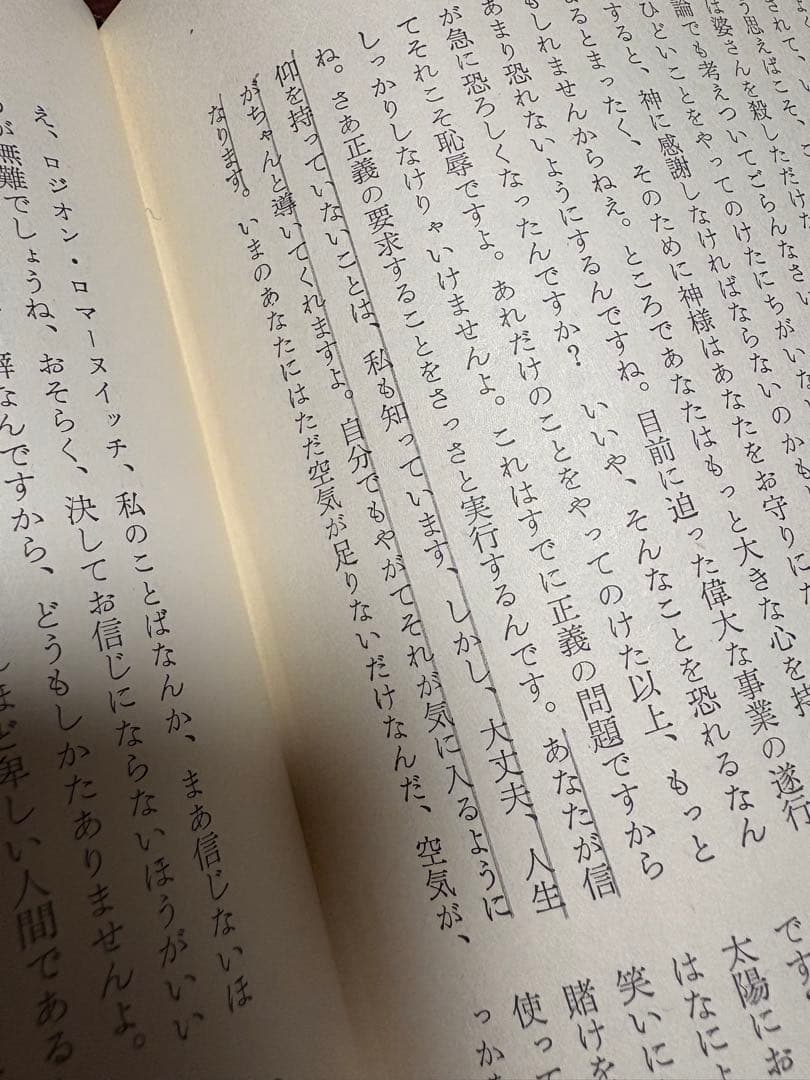 されて、い
う思えばこそ、こ
は婆さんを殺しただけだ
論でも考えついてごらんなさい、
ひどいことをやってのけたにちがいな
すると、神に感謝しなければならないのかも
るとまったく、そのために神様はあなたをお守りにな
もしれませんからねえ。ところであなたはもっと大きな心を持
あまり恐れないようにするんですね。目前に迫った偉大な事業の遂行
が急に恐ろしくなったんですか？　いいや、そんなことを恐れるなん
てそれこそ恥辱ですよ。あれだけのことをやってのけた以上、もっと
しっかりしなけりゃいけませんよ。これはすでに正義の問題ですから
ね。さあ正義の要求することをさっさと実行するんです。あなたが信
仰を持っていないことは、私も知っています、しかし、大丈夫、人生
がちゃんと導いてくれますよ。自分でもやがてそれが気に入るように
なります。いまのあなたにはただ空気が足りないだけなんだ、空気が、
です
太陽にお
はなによ
笑いに
賭けを
使って
っかま
え、ロジオン・ロマーヌイッチ、私のことばなんか、まあ信じないほ
が無難でしょうね、おそらく、決してお信じにならないほうがいい
癖なんですから、どうもしかたありませんよ。
ほど卑しい人間である